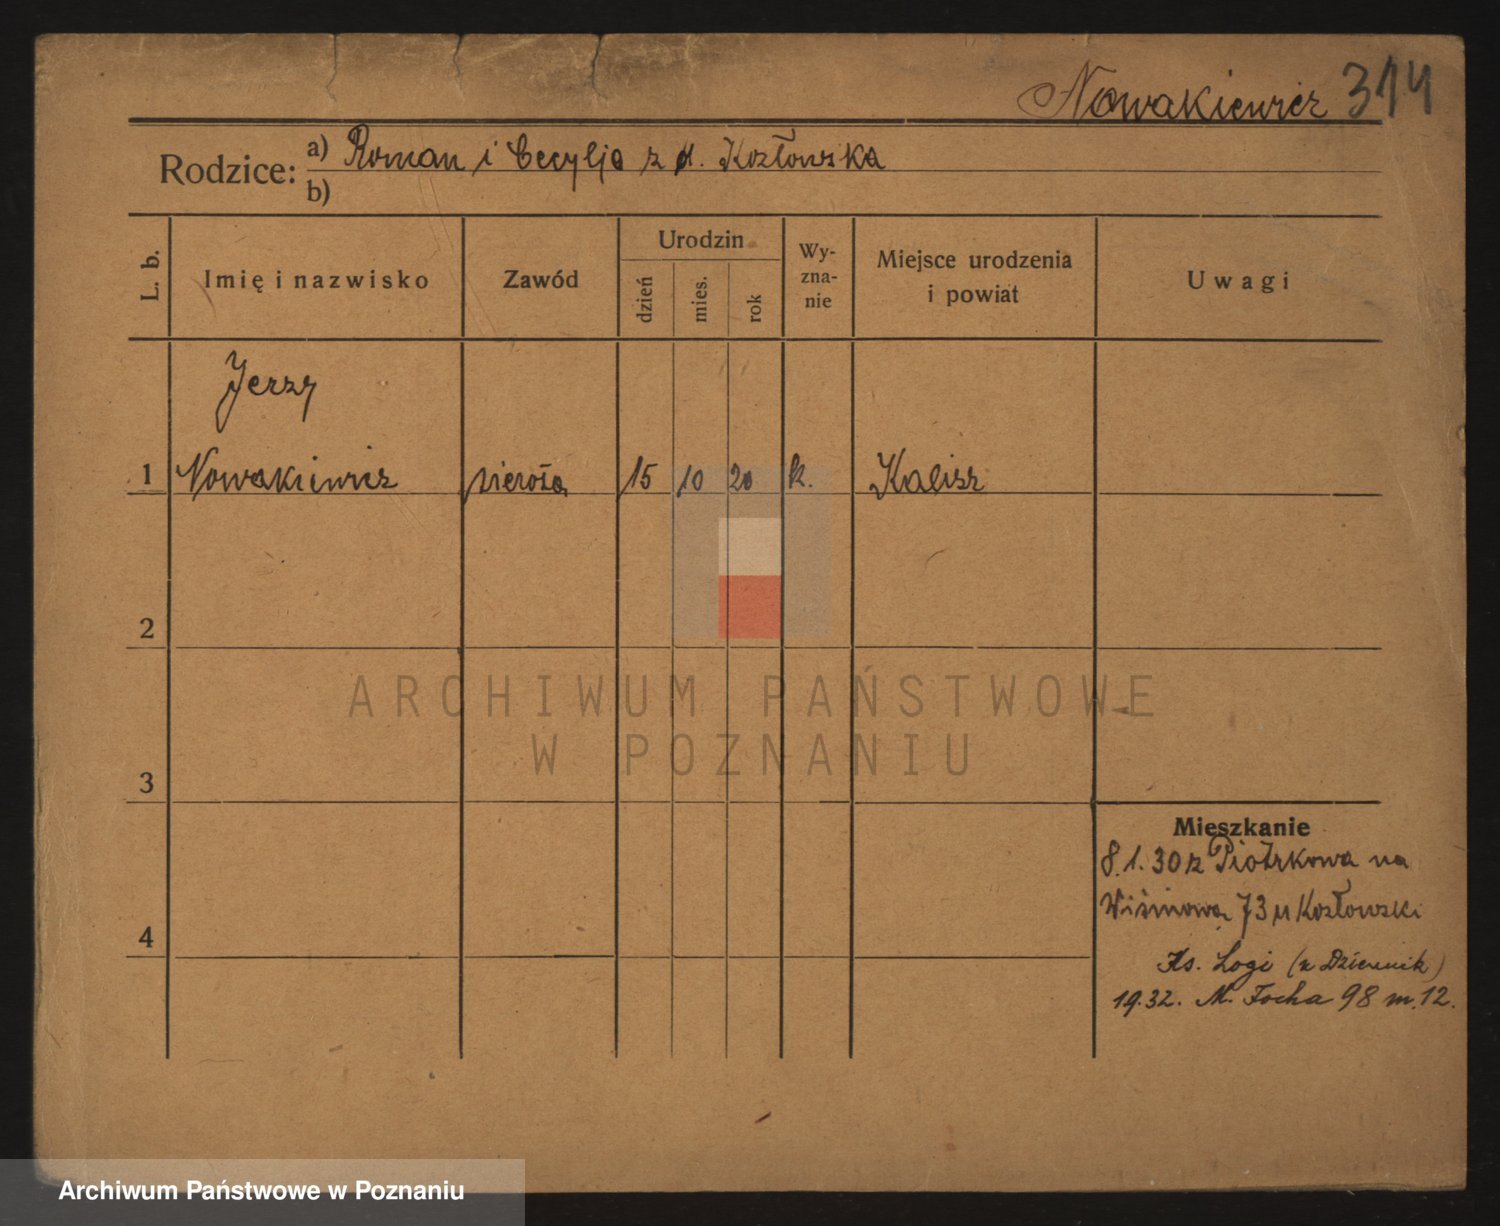 Nowakiewicz 314
Rodzice: a) Roman i Cecylja z d. Kozłowska
b)
L. b.
Imię i nazwisko
Zawód
Urodzin
dzień
mies.
rok
Wy-
zna-
nie
Miejsce urodzenia
i powiat
Uwagi
Jerzy
1 Nowakiewicz sierota 15 10 20 k. Kalisz
2
3
4
Mieszkanie
8.1.30 z Piotrkowa na
Wiśniowa 73 u Kozłowski
Ks. Logi (z Dziennik)
19.32. M. Focha 98 m. 12.
ARCHIWUM PAŃSTWOWE
W POZNANIU
Archiwum Państwowe w Poznaniu